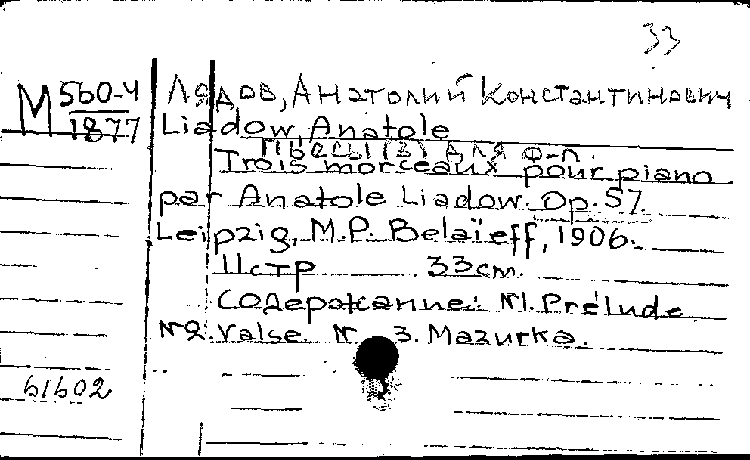 33
М 560-4
1877
Лядов, Анатолий Константинович
Liadow, Anatole
Пьесы (3) для ф-п.
Trois morceaux pour piano
par Anatole Liadow. Op. 57.
Leipzig, M.P. Belaïeff, 1906.
11 стр 33 cm.
Содержание: №1. Prélude
№2. Valse. № 3. Mazurka.
61602